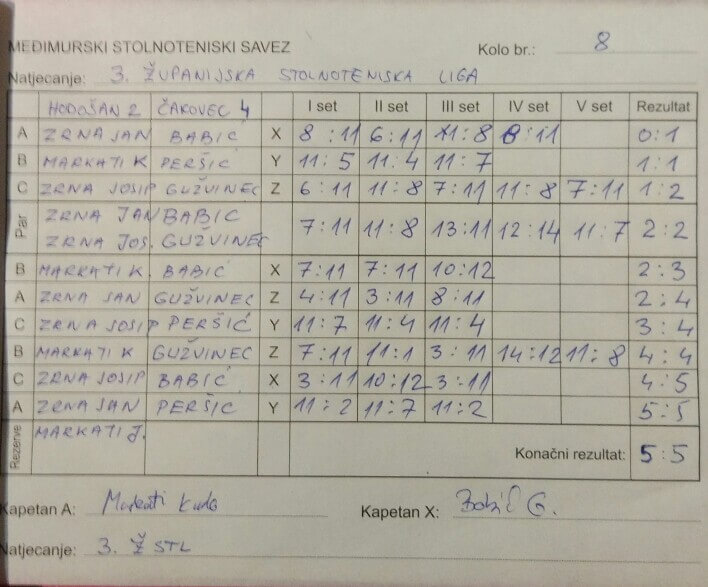 MEĐIMURSKI STOLNOTENISKI SAVEZ
Kolo br.: 8
Natjecanje: 3. ŽUPANIJSKA STOLNOTENISKA LIGA
HODOŠAN 2 ČAKOVEC 4 I set II set III set IV set V set Rezultat
A ZRNA JAN BABIĆ X 8:11 6:11 11:8 8:11 0:1
B MARKATI K PERŠIĆ Y 11:5 11:4 11:7 1:1
C ZRNA JOSIP GUŽVINEC Z 6:11 11:8 7:11 11:8 7:11 1:2
Par ZRNA JAN BABIC
ZRNA JOS. GUŽVINEC 7:11 11:8 13:11 12:14 11:7 2:2
B MARKATI K. BABIĆ X 7:11 7:11 10:12 2:3
A ZRNA JAN GUŽVINEC Z 4:11 3:11 8:11 2:4
C ZRNA JOSIP PERŠIĆ Y 11:7 11:4 11:4 3:4
B MARKATI K GUŽVINEC Z 7:11 11:1 3:11 14:12 11:8 4:4
C ZRNA JOSIP BABIĆ X 3:11 10:12 3:11 4:5
A ZRNA JAN PERŠIĆ Y 11:2 11:7 11:2 5:5
Rezerve MARKATI J.
Konačni rezultat: 5:5
Kapetan A: Markati Kapetan X: Babić G.
Natjecanje: 3. Ž STL